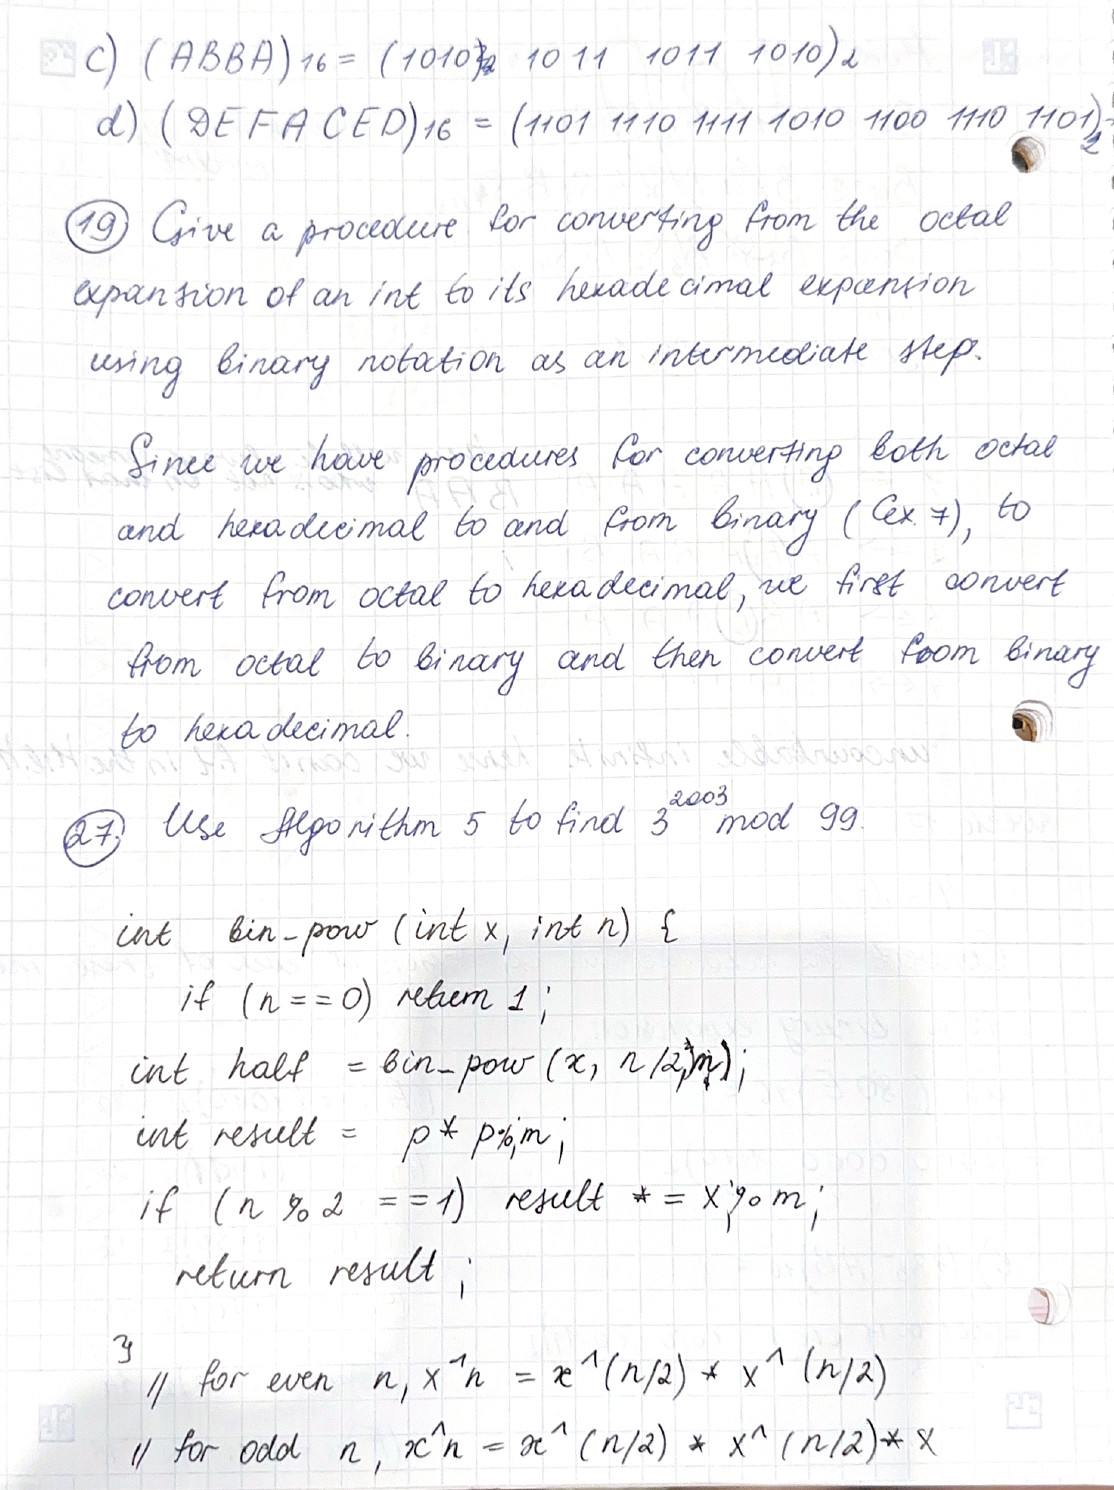 c) (ABBA)16 = (1010 1011 1011 1010)2
d) (DEFACED)16 = (1101 1110 1111 1010 1100 1110 1101)2
19) Give a procedure for converting from the octal
expansion of an int to its hexadecimal expansion
using binary notation as an intermediate step.
Since we have procedures for converting both octal
and hexadecimal to and from binary (Ex. 7), to
convert from octal to hexadecimal, we first convert
from octal to binary and then convert from binary
to hexadecimal.
27) Use Algorithm 5 to find 3^2003 mod 99.
int bin_pow (int x, int n) {
if (n == 0) return 1;
int half = bin_pow (x, n/2, m);
int result = p * p%m;
if (n % 2 == 1) result * = x%m;
return result;
}
// for even n, x^n = x^(n/2) * x^(n/2)
// for odd n, x^n = x^(n/2) * x^(n/2) * x